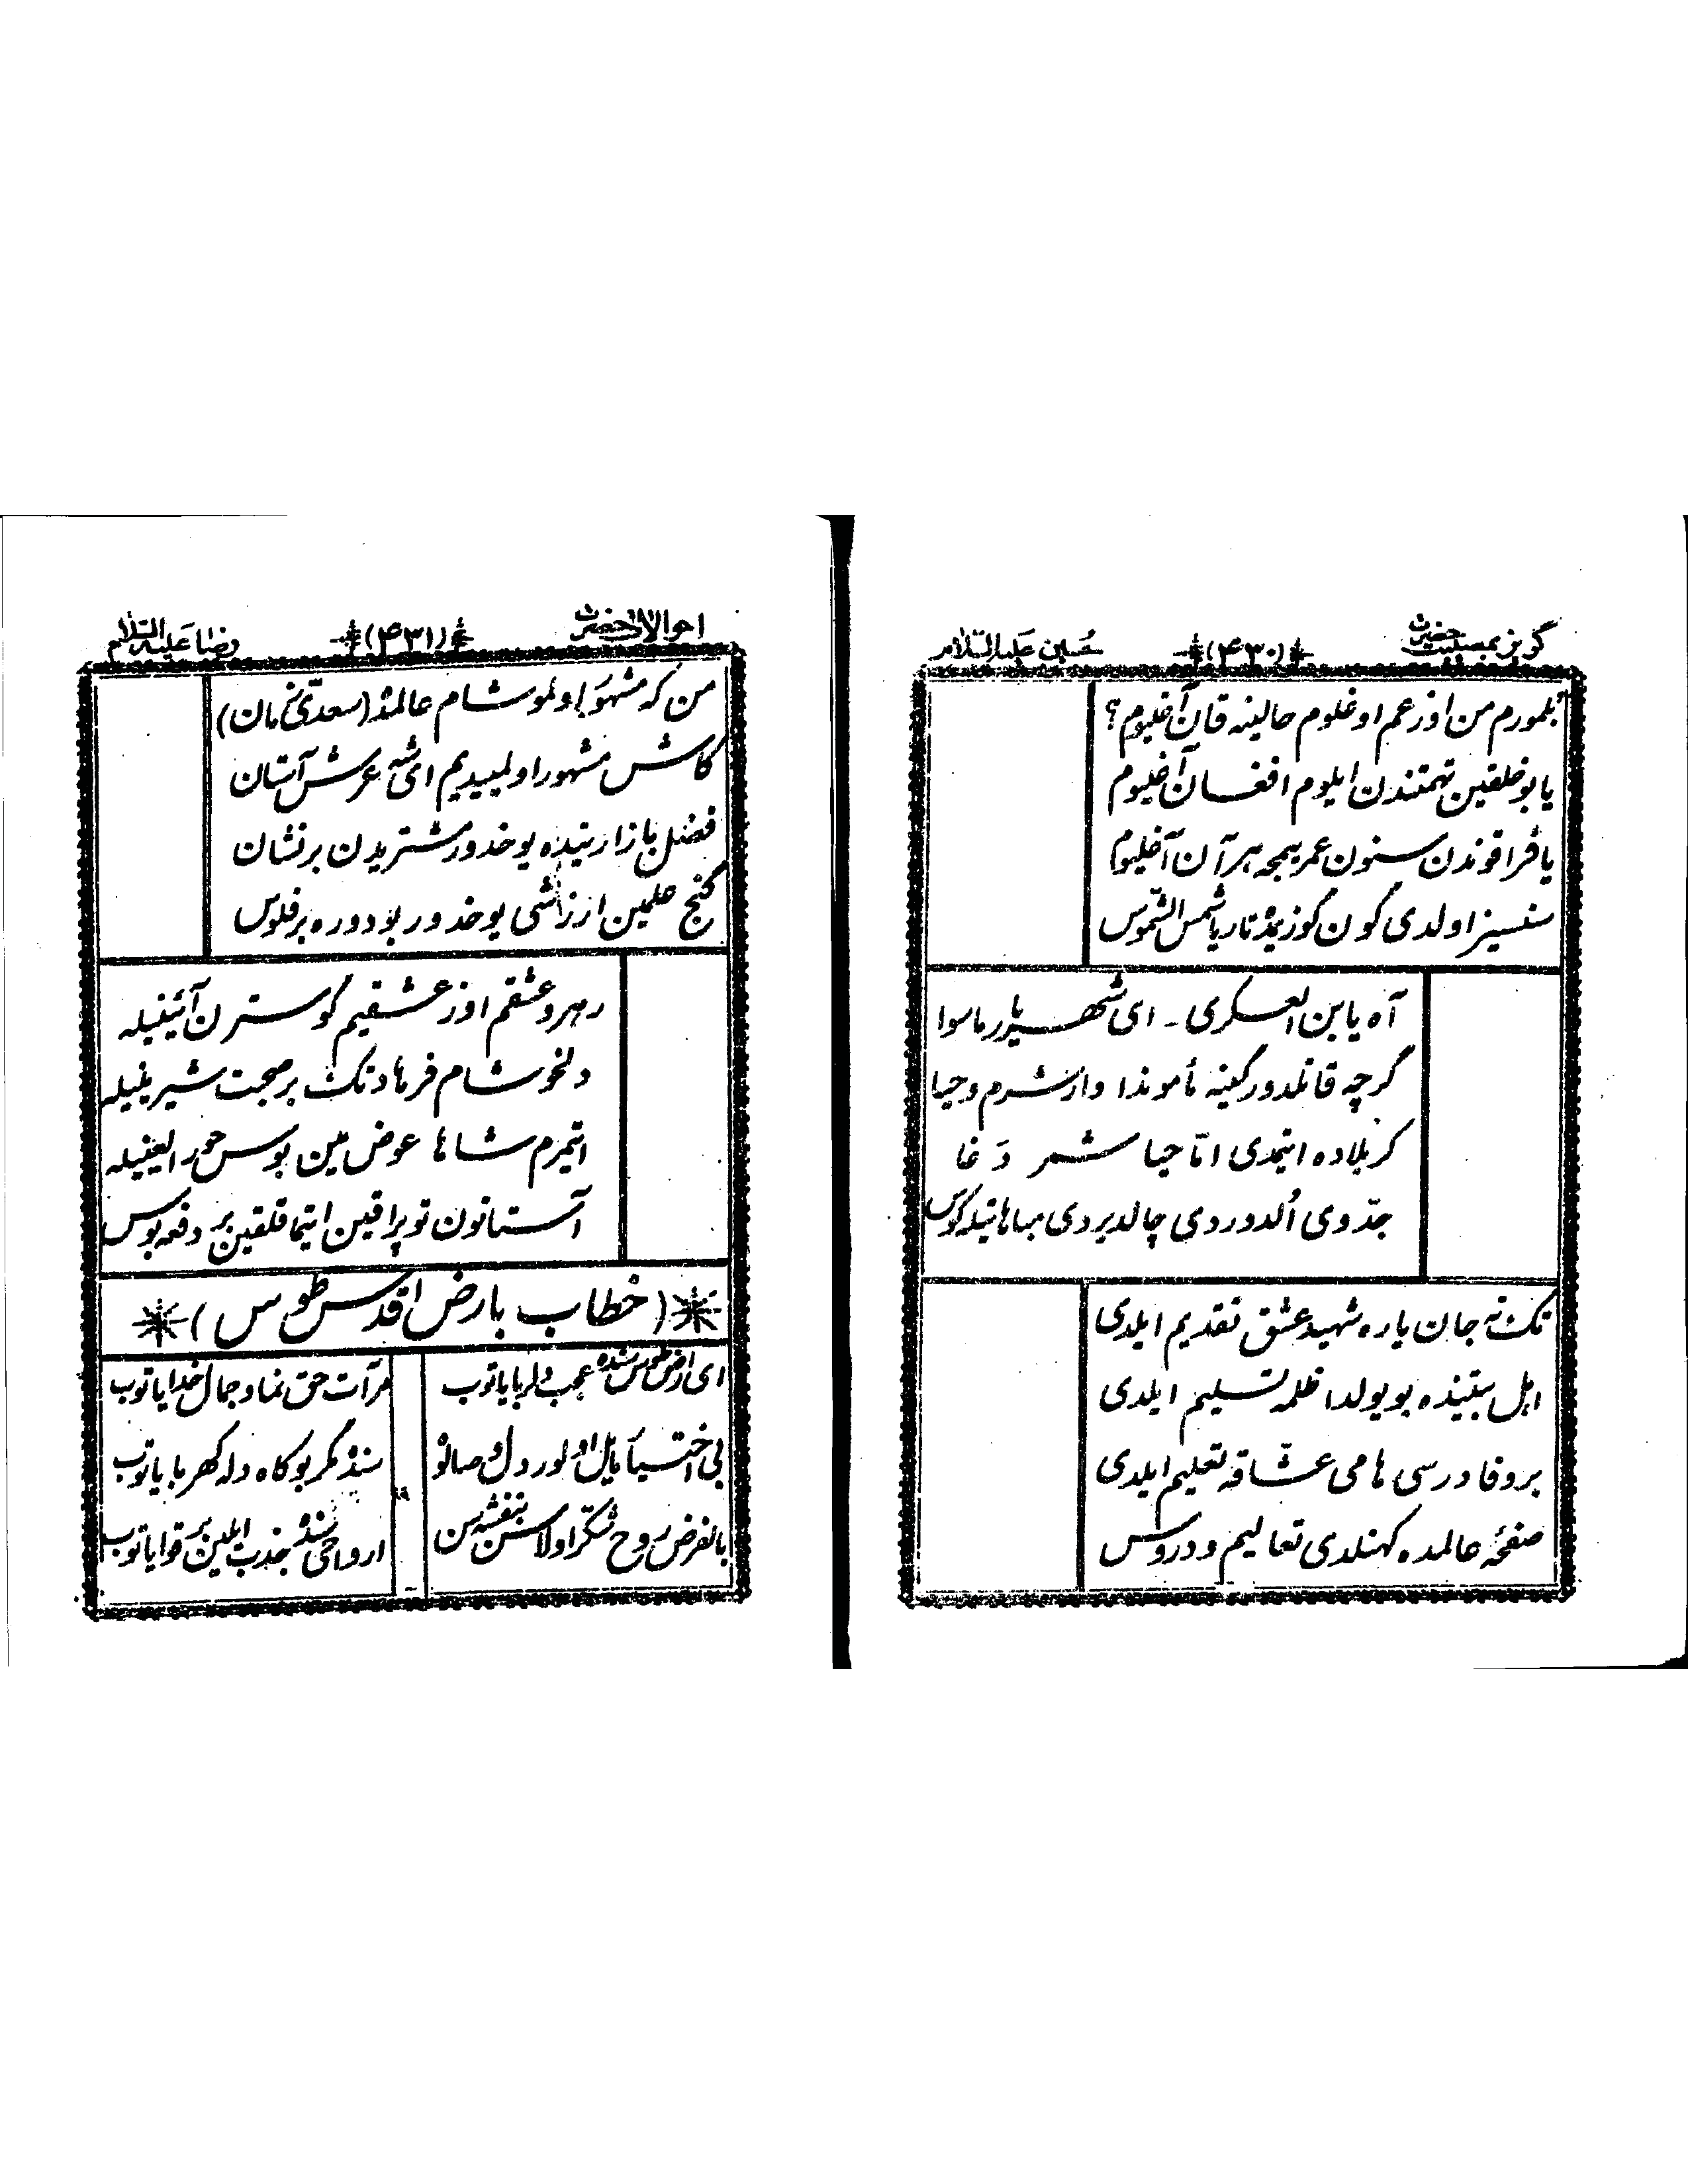 گریز بمصیبت حضرت (۴۳۰) حسین علیه السلام
بلمورم من اوز عمم اوغلوم حالینه قان آغلیوم؟
یا بو خلقین تهمتندن ایلیوم افغان آغلیوم
یا فراقوندن سنون عمریمجه هر آن آغلیوم
سنسیز اولدی گون گوزیمده تار یا شمس الشموس
آه یابن العسکری - ای شهریار ماسوا
گرچه قاتلدور گینه مأموندا وار شرم و حیا
کربلاده ایتمدی اما حیا شمر دغا
جدوی اُلدوردی چالدیردی مباهاتیله کوس
تک نه جان یاره شهید عشق تقدیم ایلدی
اهل بیتینده بو یولدا ظلمه تسلیم ایلدی
بر وفا درسی هامی عشاقه تعلیم ایلدی
صفحهٔ عالمده کهنلدی تعالیم و دروس
احوالات حضرت (۴۳۱) رضا علیه السلام
من که مشهور اولموشام عالمده (سعدی زمان)
کاش مشهور اولمییدیم ای شه عرش آستان
فضل بازارینده یوخدور مشتریدن بر نشان
گنج علمین ارزشی یوخدور بو دوره بر فلوس
رهرو عشقم اوز عشقیم گوسترن آئینیله
دلخوشام فرهاد تک بر صحبت شیرینیله
ایتمرم شاها عوض مین بوس حور العینیله
آستانون توپراقین ایتما قلقین بر دفعه بوس
(خطاب بارض اقدس طوس)
ای ارض طوس سنده عجب دلربا یاتوب
مرآت حق نما و جمال خدا یاتوب
بی اختیار مایل اولور دل صالو
سنده مگر بو کاه دله کهربا یاتوب
بالفرض روح شکر اولا سن بنفشه سن
ارواحی سنده جذب ایلین بر قوا یاتوب